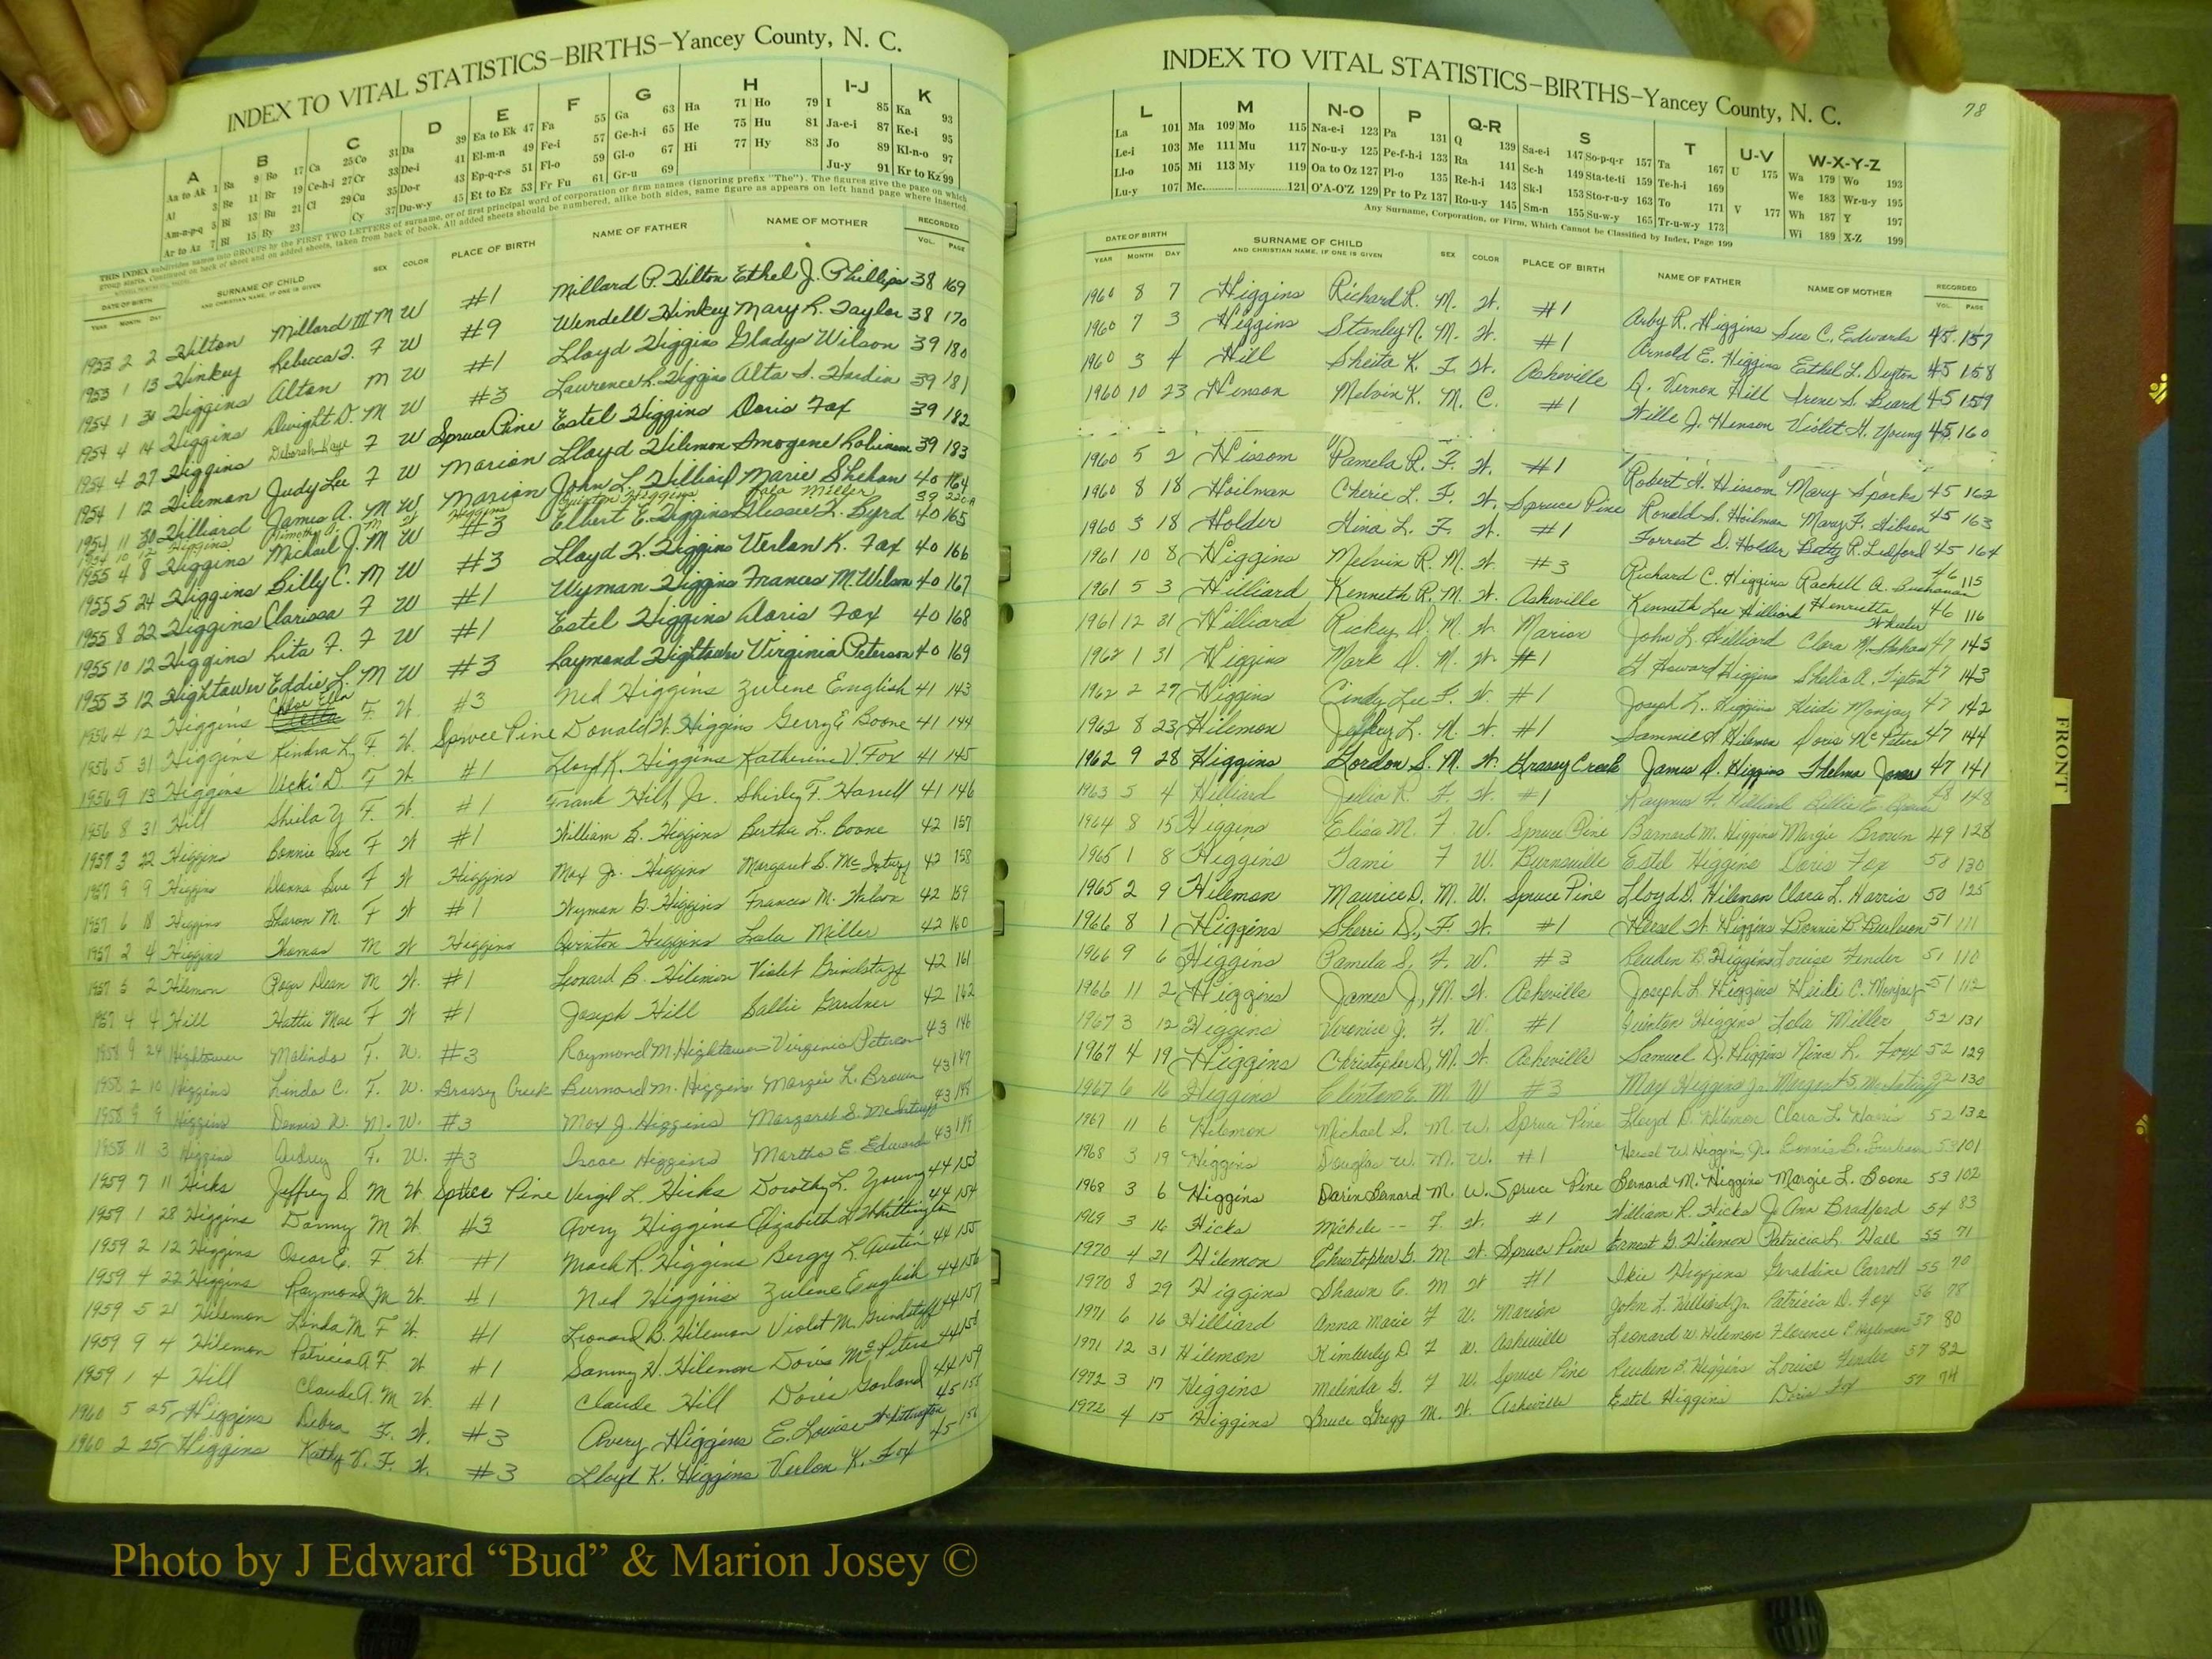 INDEX TO VITAL STATISTICS—BIRTHS—Yancey County, N. C.
A B C D E F G H I-J K
Aa to Ak 1 Ba 9 Bo 17 Ca 25 Co 31 Da 39 Ea to Ek 47 Fa 55 Ga 63 Ha 71 Ho 79 I 85 Ka 93
Al 3 Be 11 Br 19 Ce-h-i 27 Cr 33 De-i 41 El-m-n 49 Fe-i 57 Ge-h-i 65 He 75 Hu 81 Ja-e-i 87 Ke-i 95
Am-n-p-q 5 Bi 13 Bu 21 Cl 29 Cu 35 Do-r 43 Ep-q-r-s 51 Fl-o 59 Gl-o 67 Hi 77 Hy 83 Jo 89 Kl-n-o 97
Ar to Az 7 Bl 15 By 23 Cy 37 Du-w-y 45 Et to Ez 53 Fr Fu 61 Gr-u 69 Ju-y 91 Kr to Kz 99
DATE OF BIRTH SURNAME OF CHILD SEX COLOR PLACE OF BIRTH NAME OF FATHER NAME OF MOTHER RECORDED
YEAR MONTH DAY AND CHRISTIAN NAME, IF ONE IS GIVEN VOL. PAGE
1953 2 2 Hilton Millard III M W #1 Millard P. Hilton Ethel J. Phillips 38 169
1953 1 13 Hinkey Rebecca J. F W #9 Wendell Hinkey Mary R. Taylor 38 170
1954 1 31 Higgins Alton M W #1 Lloyd Higgins Gladys Wilson 39 180
1954 4 14 Higgins Dwight D. M W #3 Lawrence L. Higgins Alta S. Hardin 39 181
1954 4 27 Higgins Deborah Kaye F W Spruce Pine Estel Higgins Doris Fox 39 182
1954 1 12 Hileman Judy Lee F W Marion Lloyd Hilemon Imogene Robinson 39 183
1954 11 30 Hilliard James A. M W Marion John L. Hilliard Marie Shehan 40 164
1954 10 12 Higgins Timothy M W Higgins Quinton Higgins Lola Miller 39 220A
1955 4 8 Higgins Michael J. M W #3 Elbert E. Higgins Flossie L. Byrd 40 165
1955 5 24 Higgins Billy C. M W #3 Lloyd K. Higgins Verlon K. Fox 40 166
1955 8 22 Higgins Clarissa F W #1 Wyman Higgins Frances M. Wilson 40 167
1955 10 12 Higgins Rita F. F W #1 Estel Higgins Doris Fox 40 168
1955 3 12 Hightower Eddie L. M W #3 Raymond Hightower Virginia Peterson 40 169
1956 4 12 Higgins Chloe Ella F. W. #3 Ned Higgins Zulene English 41 143
1956 5 31 Higgins Kindra L. F. W. Spruce Pine Donald W. Higgins Gerry E Boone 41 144
1956 9 13 Higgins Vicki D. F W. #1 Lloyd K. Higgins Katherine V. Fox 41 145
1956 8 31 Hill Sheila Y F. W. #1 Frank Hill, Jr. Shirley F. Harrell 41 146
1957 3 22 Higgins Bonnie Sue F W #1 William B. Higgins Bertha L. Boone 42 157
1957 9 9 Higgins Donna Sue F W Higgins Max Jr. Higgins Margaret S. McIntuff 42 158
1957 6 18 Higgins Sharon M. F W #1 Wyman B. Higgins Frances M. Wilson 42 159
1957 2 4 Higgins Thomas M W Higgins Quinton Higgins Lola Miller 42 160
1957 5 2 Hilemon Roger Dean M W. #1 Leonard B. Hilemon Violet Grindstaff 42 161
1957 4 4 Hill Hattie Mae F W #1 Joseph Hill Sallie Gardner 42 162
1958 9 24 Hightower Malinda F. W. #3 Raymond M. Hightower Virginia Peterson 43 146
1958 2 10 Higgins Linda C. F. W. Grassy Creek Burnard M. Higgins Margie L. Brown 43 147
1958 9 9 Higgins Dennis D. M. W. #3 Max J. Higgins Margaret S. McInturff 43 148
1958 11 3 Higgins Audrey F. W. #3 Isaac Higgins Martha E. Edwards 43 149
1959 7 11 Hicks Jeffrey S. M W. Spruce Pine Virgil L. Hicks Dorothy L. Young 44 153
1959 1 28 Higgins Danny M W. #3 Avery Higgins Elizabeth L. Whittington 44 154
1959 2 12 Higgins Oscar E. F W. #1 Mack R. Higgins Bergy L. Austin 44 155
1959 4 22 Higgins Raymond M W. #1 Ned Higgins Zulene English 44 156
1959 5 21 Hilemon Linda M. F W. #1 Leonard B. Hilemon Violet M. Grindstaff 44 157
1959 9 4 Hilemon Patricia A. F. W #1 Sammy H. Hilemon Doris McPeters 44 158
1959 1 4 Hill Claude A. M W. #1 Claude Hill Doris Garland 44 159
1960 5 25 Higgins Debra F. W. #3 Avery Higgins E. Louise Whittington 45 155
1960 2 25 Higgins Kathy V. F. W. #3 Lloyd K. Higgins Verlon K. Fox 45 156
78
INDEX TO VITAL STATISTICS—BIRTHS—Yancey County, N. C.
L M N-O P Q-R S T U-V W-X-Y-Z
La 101 Ma 109 Mo 115 Na-e-i 123 Pa 131 Q 139 Sa-e-i 147 So-p-q-r 157 Ta 167 U 175 Wa 179 Wo 193
Le-i 103 Me 111 Mu 117 No-u-y 125 Pe-f-h-i 133 Ra 141 Sc-h 149 Sta-te-ti 159 Te-h-i 169 We 183 Wr-u-y 195
Ll-o 105 Mi 113 My 119 Oa to Oz 127 Pl-o 135 Re-h-i 143 Sk-l 153 Sto-r-u-y 163 To 171 V 177 Wh 187 Y 197
Lu-y 107 Mc 121 O'A-O'Z 129 Pr to Pz 137 Ro-u-y 145 Sm-n 155 Su-w-y 165 Tr-u-w-y 173 Wi 189 X-Z 199
Any Surname, Corporation, or Firm, Which Cannot be Classified by Index, Page 199
DATE OF BIRTH SURNAME OF CHILD SEX COLOR PLACE OF BIRTH NAME OF FATHER NAME OF MOTHER RECORDED
YEAR MONTH DAY AND CHRISTIAN NAME, IF ONE IS GIVEN VOL. PAGE
1960 8 7 Higgins Richard R. M. W. #1 Arby R. Higgins Sue C. Edwards 45 157
1960 7 3 Higgins Stanley N. M. W. #1 Arnold E. Higgins Ethel L. Duyton 45 158
1960 3 4 Hill Sheita K. F. W. Asheville A. Vernon Hill Irene S. Beard 45 159
1960 10 23 Henson Melvin K. M. C. #1 Wille J. Henson Violet H. Young 45 160
1960 5 2 Hissom Pamela R. F. W. #1 Robert H. Hissom Mary Sparks 45 162
1960 8 18 Hoilman Cherie L. F. W. Spruce Pine Ronald S. Hoilman Mary F. Gibson 45 163
1960 3 18 Holder Gina L. F. W. #1 Forrest D. Holder Betty R. Ledford 45 164
1961 10 8 Higgins Melvin R. M. W. #3 Richard C. Higgins Rachell A. Buchanan 46 115
1961 5 3 Hilliard Kenneth R. M. W. Asheville Kenneth Lee Hilliard Henrietta Wheeler 46 116
1961 12 31 Hilliard Rickey D. M. W. Marion John L. Hilliard Clara M. Shehan 47 145
1962 1 31 Higgins Mark D. M. W. #1 G Howard Higgins Shelia A. Tipton 47 143
1962 2 27 Higgins Cindy Lee F. W. #1 Joseph L. Higgins Heidi Monjoy 47 142
1962 8 23 Hilemon Jeffrey L. M. W. #1 Sammie H Hilemon Doris McPeters 47 144
1962 9 28 Higgins Gordon S. M. W. Grassy Creek James D. Higgins Thelma Jones 47 141
1963 5 4 Hilliard Julia R. F. W. #1 Hilliard Billie 48 148
1964 8 15 Higgins Elisa M. F W. Spruce Pine Barnard M. Higgins Margie Brown 49 128
1965 1 8 Higgins Tami F W. Burnsville Estel Higgins Doris Fox 50 130
1965 2 9 Hilemon Maurice D. M. W. Spruce Pine Lloyd D. Hilemon Clara L. Harris 50 125
1966 8 1 Higgins Sherri D., F. W. #1 Hersel W. Higgins Bonnie B. Burleson 51 111
1966 9 6 Higgins Pamela S. F. W. #3 Reuben B. Higgins Louise Fender 51 110
1966 11 2 Higgins James J., M. W. Asheville Joseph L. Higgins Heidi C. Monjoy 51 112
1967 3 12 Higgins Vernice J. F. W. #1 Quinton Higgins Lola Miller 52 131
1967 4 19 Higgins Christopher D, M. W. Asheville Samuel D. Higgins Nina L. Foxx 52 129
1967 6 16 Higgins Clinton E M W #3 Max Higgins Jr. Margaret S. McInturff 52 130
1967 11 6 Hilemon Michael S. M. W. Spruce Pine Lloyd D. Hilemon Clara L. Harris 52 132
1968 3 19 Higgins Douglas W. M. W. #1 Hersel W Higgins, Jr. Bonnie B. Burleson 53 101
1968 3 6 Higgins Darin Bernard M. W. Spruce Pine Bernard M. Higgins Margie L. Boone 53 102
1969 3 16 Hicks Michele -- F. W. #1 William R. Hicks Jo Ann Bradford 54 83
1970 4 21 Hilemon Christopher G. M W. Spruce Pine Ernest G. Hilemon Patricia L. Hall 55 71
1970 8 29 Higgins Shawn C. M W #1 Ikie Higgins Geraldine Carroll 55 70
1971 6 16 Hilliard Anna Marie F W. Marion John L. Hilliard Jr. Patricia D. Fox 56 78
1971 12 31 Hilemon Kimberly D. F W. Asheville Leonard W. Hilemon Florence P. Hylemon 57 80
1972 3 17 Higgins Melinda G. F W. Spruce Pine Reuben B. Higgins Louise Fender 57 82
1972 4 15 Higgins Bruce Gregg M. W. Asheville Estel Higgins Doris Fox 57 74
FRONT
Photo by J Edward “Bud” & Marion Josey ©